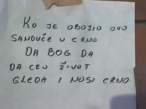 KO JE OBOJIO OVO
SANDUČE U CRNO
DA BOG DA
DA CEO ŽIVOT
GLEDA I NOSI CRNO